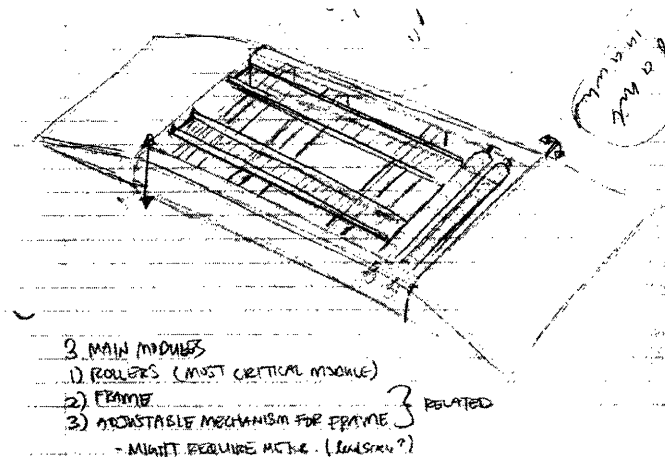 3 MAIN MODULES
1) ROLLERS (MOST CRITICAL MODULE)
2) FRAME
3) ADJUSTABLE MECHANISM FOR FRAME } RELATED
- MIGHT REQUIRE MOTOR. (leadscrew?)